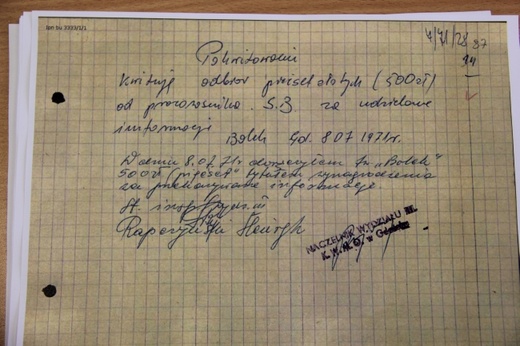 ipn bu 3933/1/1
4/71/28 87
Pokwitowanie
Kwituję odbiór pięćset złotych (500 zł)
od pracownika S.B. za udzielone
informacje
Bolek Gd. 8.07.1971r.
W dniu 8.07.71r. TW „Bolek”
500 zł (pięćset) tytułem wynagrodzenia
za przekazywane informacje.
St. insp.
Rapczyński Henryk
NACZELNIK WYDZIAŁU III
K. W. M. O. w Gdańsku